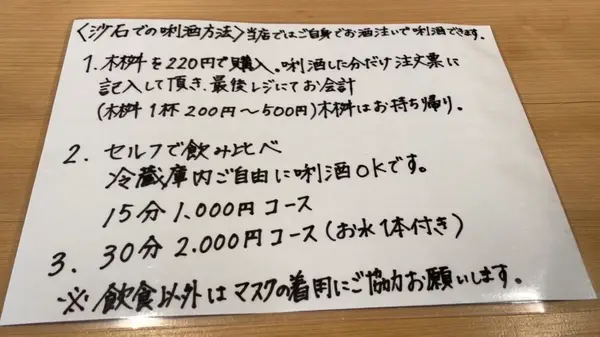 〈沙石での唎酒方法〉当店ではご自身でお酒注いで唎酒できます。
1.木桝を220円で購入。唎酒した分だけ注文票に
記入して頂き、最後レジにてお会計
(木桝1杯200円～500円)木桝はお持ち帰り。
2.セルフで飲み比べ
冷蔵庫内ご自由に唎酒OKです。
15分1,000円コース
3.30分2.000円コース(お水1本付き)
※飲食以外はマスクの着用にご協力お願いします。